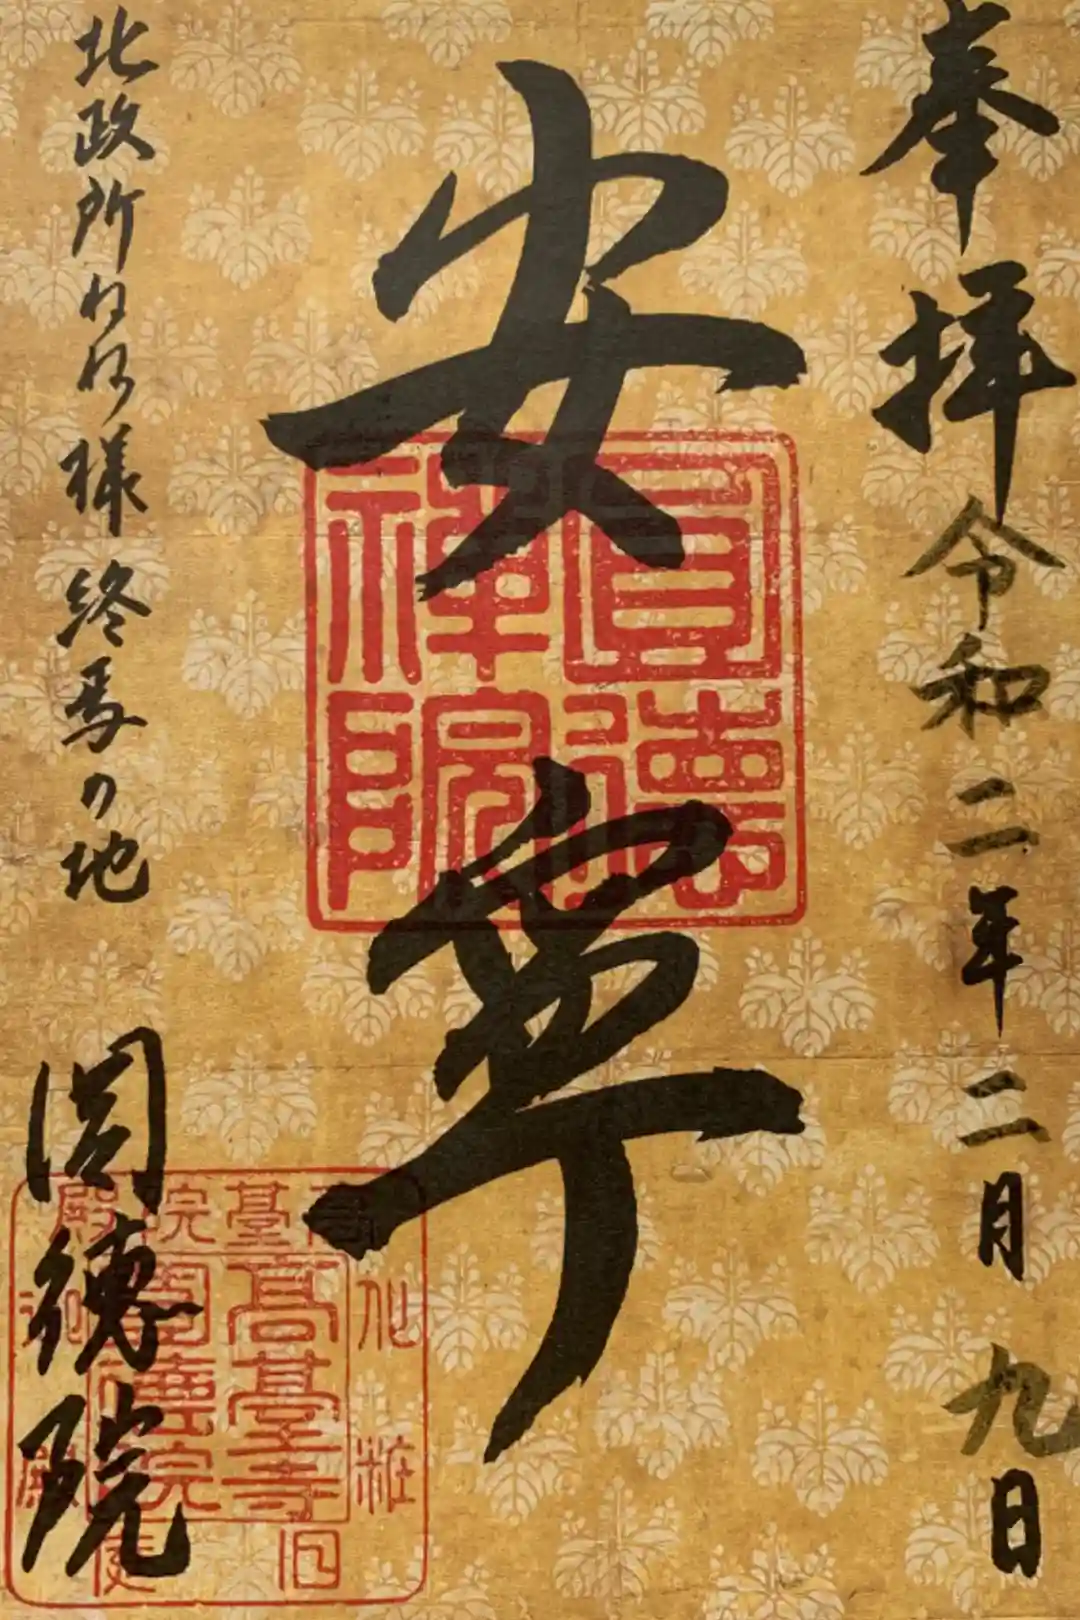 奉拝 令和二年二月九日
安寧
圓徳禅院
北政所ねね様 終焉の地
圓徳院
高臺院
高臺寺
圓徳院
化粧